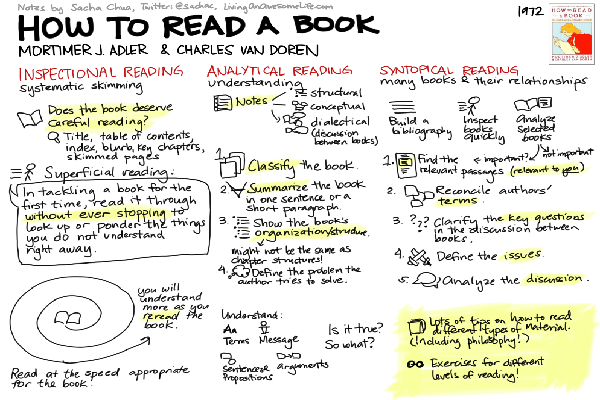 Notes by Sacha Chua, Twitter: @sachac, LivingAnAwesomeLife.com
HOW TO READ A BOOK
MORTIMER J. ADLER & CHARLES VAN DOREN
1972
HOW TO READ
A BOOK
INSPECTIONAL READING
systematic skimming
Does the book deserve
careful reading?
Title, table of contents,
index, blurb, key chapters,
skimmed pages
Superficial reading:
In tackling a book for the
first time, read it through
without ever stopping to
look up or ponder the things
you do not understand
right away.
you will
understand
more as you
reread the
book.
Read at the speed appropriate
for the book!
ANALYTICAL READING
understanding
Notes
structural
conceptual
dialectical
(discussion
between books)
1. Classify the book.
2. Summarize the book
in one sentence or a
short paragraph.
3. Show the book's
organization/structure.
might not be the same as
chapter structures!
4. Define the problem the
author tries to solve.
Understand:
Aa
Terms
Message
Is it true?
So what?
Sentences
Propositions
arguments
SYNTOPICAL READING
many books & their relationships
Build a
bibliography
Inspect
books
quickly
Analyze
selected
books
1. Find the
relevant passages (relevant to you)
important?
not important
2. Reconcile authors'
terms.
3. ?? Clarify the key questions
in the discussion between
books.
4. Define the issues.
5. Analyze the discussion.
Lots of tips on how to read
different types of material.
(Including philosophy!)
Exercises for different
levels of reading!